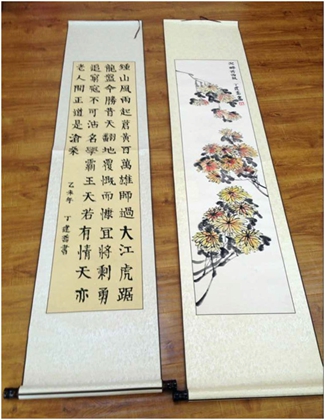 鍾山風雨起蒼黃百萬雄師過大江虎踞
龍盤今勝昔天翻地覆慨而慷宜將剩勇
追窮寇不可沽名學霸王天若有情天亦
老人間正道是滄桑
乙未年 丁建書